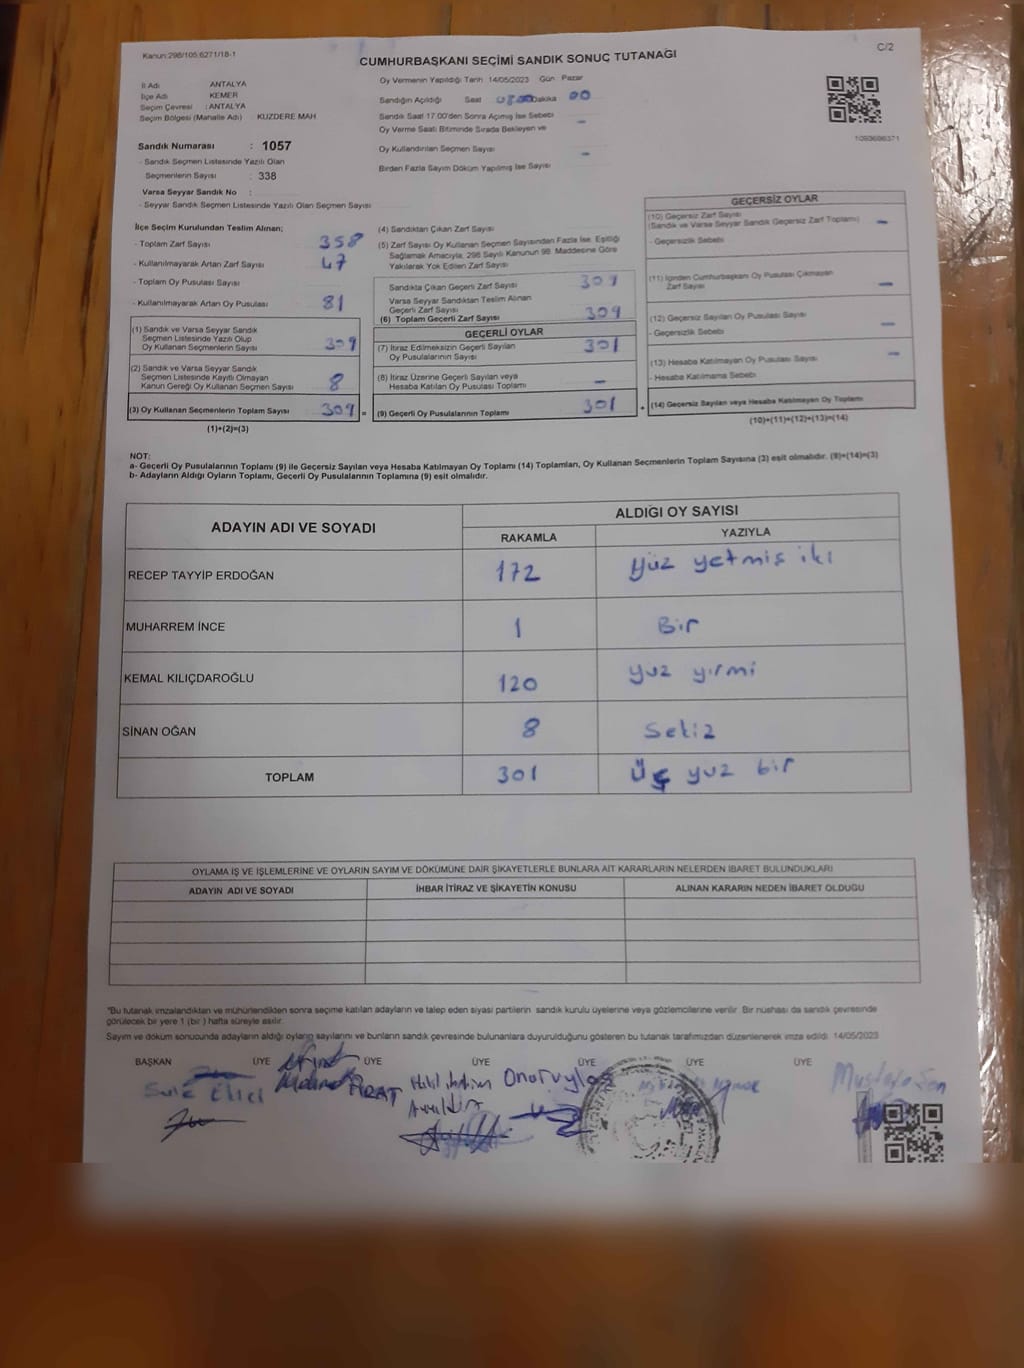 Kanun:298/105,6271/18-1
C/2
CUMHURBAŞKANI SEÇİMİ SANDIK SONUÇ TUTANAĞI
İl Adı ANTALYA
İlçe Adı KEMER
Seçim Çevresi : ANTALYA
Seçim Bölgesi (Mahalle Adı) KUZDERE MAH
Oy Vermenin Yapıldığı Tarih 14/05/2023 Gün Pazar
Sandığın Açıldığı Saat 08:00 Dakika 00
Sandık Saat 17.00'den Sonra Açımış İse Sebebi
Oy Verme Saati Bitiminde Sırada Bekleyen ve -
Oy Kullandırılan Seçmen Sayısı
Birden Fazla Sayım Döküm Yapılmış İse Sayısı -
1093686371
Sandık Numarası : 1057
- Sandık Seçmen Listesinde Yazılı Olan
Seçmenlerin Sayısı : 338
Varsa Seyyar Sandık No :
- Seyyar Sandık Seçmen Listesinde Yazılı Olan Seçmen Sayısı
İlçe Seçim Kurulundan Teslim Alınan;
- Toplam Zarf Sayısı 358
- Kullanılmayarak Artan Zarf Sayısı 47
- Toplam Oy Pusulası Sayısı
- Kullanılmayarak Artan Oy Pusulası 81
(1) Sandık ve Varsa Seyyar Sandık
Seçmen Listesinde Yazılı Olup
Oy Kullanan Seçmenlerin Sayısı 309
(2) Sandık ve Varsa Seyyar Sandık
Seçmen Listesinde Kayıtlı Olmayan
Kanun Gereği Oy Kullanan Seçmen Sayısı 8
(3) Oy Kullanan Seçmenlerin Toplam Sayısı 309 =
(1)+(2)=(3)
(4) Sandıktan Çıkan Zarf Sayısı
(5) Zarf Sayısı Oy Kullanan Seçmen Sayısından Fazla İse, Eşitliği
Sağlamak Amacıyla, 298 Sayılı Kanunun 98. Maddesine Göre
Yakılarak Yok Edilen Zarf Sayısı
Sandıkta Çıkan Geçerli Zarf Sayısı 309
Varsa Seyyar Sandıktan Teslim Alınan
Geçerli Zarf Sayısı
(6) Toplam Geçerli Zarf Sayısı 309
GEÇERLİ OYLAR
(7) İtiraz Edilmeksizin Geçerli Sayılan
Oy Pusulalarının Sayısı 301
(8) İtiraz Üzerine Geçerli Sayılan veya
Hesaba Katılan Oy Pusulası Toplamı -
(9) Geçerli Oy Pusulalarının Toplamı 301 +
GEÇERSİZ OYLAR
(10) Geçersiz Zarf Sayısı
(Sandık ve Varsa Seyyar Sandık Geçersiz Zarf Toplamı) -
- Geçersizlik Sebebi
(11) İçinden Cumhurbaşkanı Oy Pusulası Çıkmayan
Zarf Sayısı -
(12) Geçersiz Sayılan Oy Pusulası Sayısı
- Geçersizlik Sebebi -
(13) Hesaba Katılmayan Oy Pusulası Sayısı -
- Hesaba Katılmama Sebebi
(14) Geçersiz Sayılan veya Hesaba Katılmayan Oy Toplamı
(10)+(11)+(12)+(13)=(14)
NOT:
a- Geçerli Oy Pusulalarının Toplamı (9) ile Geçersiz Sayılan veya Hesaba Katılmayan Oy Toplamı (14) Toplamları, Oy Kullanan Seçmenlerin Toplam Sayısına (3) eşit olmalıdır. (9)+(14)=(3)
b- Adayların Aldığı Oyların Toplamı, Geçerli Oy Pusulalarının Toplamına (9) eşit olmalıdır.
ADAYIN ADI VE SOYADI ALDIĞI OY SAYISI
RAKAMLA YAZIYLA
RECEP TAYYİP ERDOĞAN 172 Yüz yetmiş iki
MUHARREM İNCE 1 Bir
KEMAL KILIÇDAROĞLU 120 yuz yırmi
SİNAN OĞAN 8 Sekiz
TOPLAM 301 Üç yuz bir
OYLAMA İŞ VE İŞLEMLERİNE VE OYLARIN SAYIM VE DÖKÜMÜNE DAİR ŞİKAYETLERLE BUNLARA AİT KARARLARIN NELERDEN İBARET BULUNDUKLARI
ADAYIN ADI VE SOYADI İHBAR İTİRAZ VE ŞİKAYETİN KONUSU ALINAN KARARIN NEDEN İBARET OLDUĞU
"Bu tutanak imzalandıktan ve mühürlendikten sonra seçime katılan adayların ve talep eden siyasi partilerin sandık kurulu üyelerine veya gözlemcilerine verilir. Bir nüshası da sandık çevresinde
görülecek bir yere 1 (bir) hafta süreyle asılır.
Sayım ve döküm sonucunda adayların aldığı oyların sayılarını ve bunların sandık çevresinde bulunanlara duyurulduğunu gösteren bu tutanak tarafımızdan düzenlenerek imza edildi. 14/05/2023
BAŞKAN ÜYE ÜYE ÜYE ÜYE ÜYE ÜYE